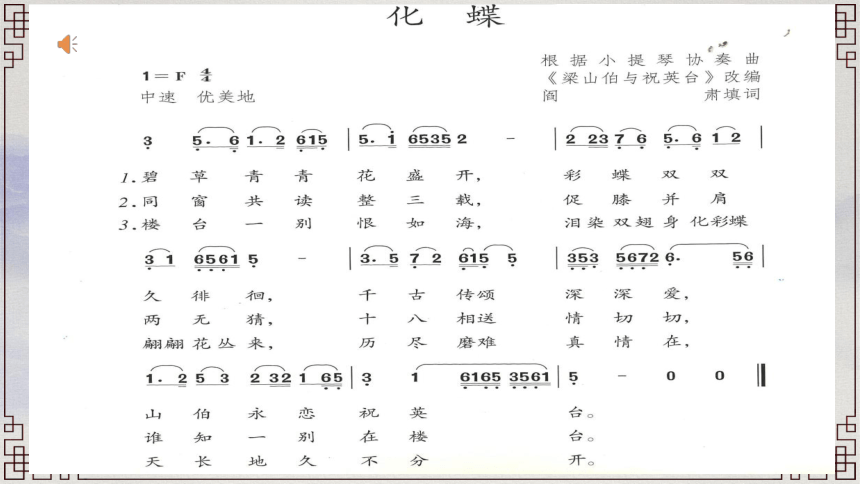 化 蝶
根 据 小 提 琴 协 奏 曲
1=F 4/4
《梁山伯与祝英台》改编
中速 优美地
阎 肃填词
3 5. 6 1. 2 615 | 5. i 6535 2 - | 2 23 7 6 5. 6 1 2 |
1.碧 草 青 青 花 盛 开, 彩 蝶 双 双
2.同 窗 共 读 整 三 载, 促 膝 并 肩
3.楼 台 一 别 恨 如 海, 泪染 双翅 身 化彩蝶
3 1 6561 5 - | 3. 5 7 2 615 5 | 353 5672 6. 56 |
久 徘 徊, 千 古 传颂 深 深 爱,
两 无 猜, 十 八 相送 情 切 切,
翩翩 花丛 来, 历 尽 磨难 真 情 在,
1. 2 5 3 2 32 1 65 | 3 1 6165 3561 | 5 - 0 0 ‖
山 伯 永 恋 祝 英 台。
谁 知 一 别 在 楼 台。
天 长 地 久 不 分 开。